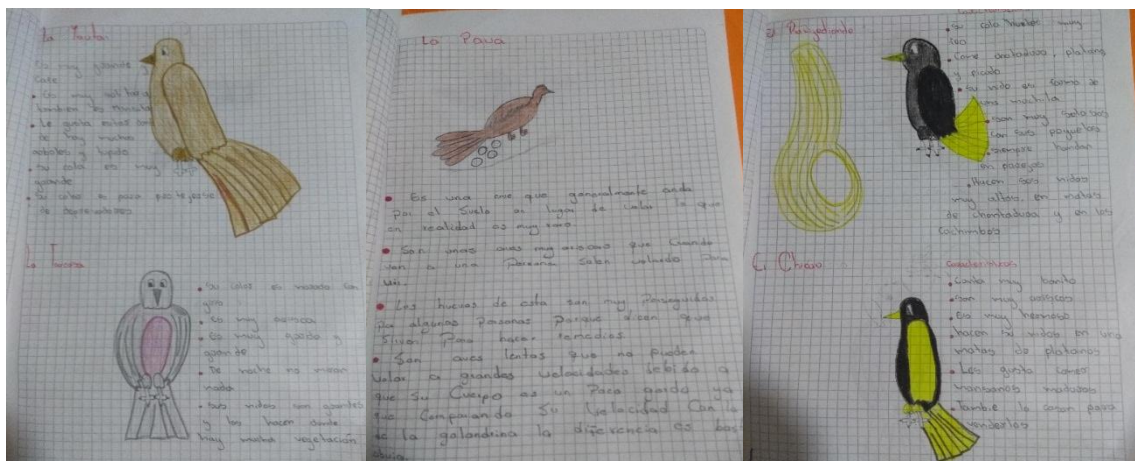 La
Es muy grande y
cafe
Es muy
tambien es
Le gusta estar
de hay muchos
arboles y
su cola es muy
grande
su color es para protejerse
de depredadores
La
su color es morado con
gris
Es muy arisca
Es muy gorda y
grande
De noche no miran
nada
sus nidos son grandes
y los hacen donde
hay mucha vegetación
La Pava
Es una ave que generalmente anda
por el Suelo en lugar de volar lo que
en realidad es muy raro.
Son unas aves muy ariscas que Cuando
ven a una Persona Salen volando Para
Los huevos de esta son muy Perseguidos
por algunas Personas Porque dicen que
Sirven Para hacer remedios.
Son aves lentas que no pueden
volar a grandes velocidades debido a
que Su Cuerpo es un Poco gordo ya
que Comparando Su Velocidad Con la
de la golondrina la diferencia es bas
El
su cola huele muy
feo
Come chontaduro, platano
y picado
su nido en forma de
una mochila
son muy selosos
con sus pequeños
siempre handan
en parejas
Hacen sus nidos
muy altos en matas
de chontaduro y en los
cachimbos
El Chicao
Caracteristicas
Canta muy bonito
son muy ariscos
Es muy hermoso
hacen su nidos en una
matas de platanos
Les gusta comer
mansanos maduros
Tambie lo casan para
venderlos